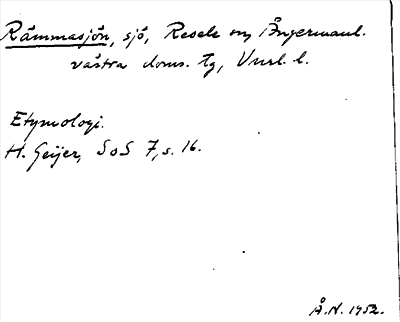 Rämmasjön, sjö, Resele sn, Ångermanl.
västra doms. tg, Vnrl. l.
Etymologi.
H. Geijer, SoS 7, s. 16.
Å.N. 1952.